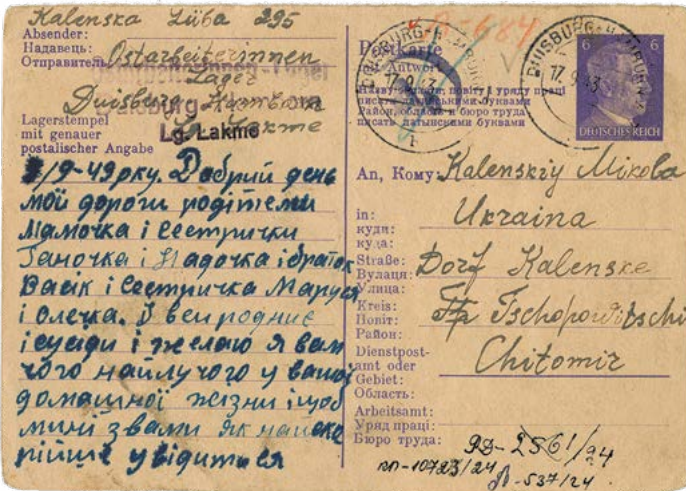 Kalenska Lüba 295
Absender:
Надавець:
Отправитель:
Ostarbeiterinnen
Lager
Duisburg Hamborn
Lg. Lakme
Lagerstempel
mit genauer
postalischer Angabe
Lg. Lakme
/9-43 рку. Добрий день
мої дороги родітеми
Мамочка і Сестрички
Ганочка і Надочка і браток
Васік і Сестричка Маруся
і Олечка. І всі родниє
і сусіди і желаю я вам
чого найлучого у вашої
домашної жизни і щоб
мині з вами як найско
рійше увідитися
Postkarte
mit Antwort
Назву области, повіту і уряду праці
писати латинськими буквами
Район, область и бюро труда
писать латынскими буквами
DUISBURG-HAMBORN
17.9.43
DUISBURG-HAMBORN
17.9.43
6 6
DEUTSCHES REICH
An, Кому: Kalenskiy Mikola
in:
куди:
куда:
Ukraina
Straße:
Вулиця:
Улица:
Dorf Kalenske
Kreis:
Повіт:
Район:
Tschopowitschi
Dienstpost-
amt oder
Gebiet:
Область:
Chitomir
Arbeitsamt:
Уряд праці:
Бюро труда:
РД-2561/24
пп-10723/24
Л-537/24